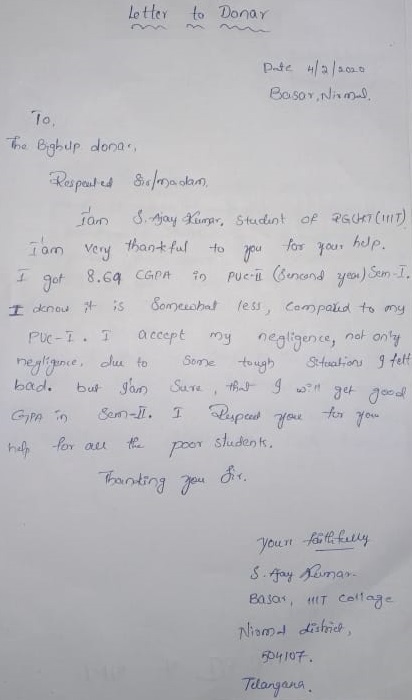 Letter to Donar
Date 4/2/2020
Basar, Nirmal.
To,
The Bighup donar,
Respected Sir/madam,
I am S. Ajay Kumar, Student OF RGUKT (IIIT)
I am very thankful to you for your help.
I got 8.69 CGPA in PUC-II (Sencond year) Sem-I.
I know it is Somewhat less, Compared to my
PUC-I. I accept my negligence, not only
negligence, due to Some tough Situations I felt
bad. but I am Sure, that I will get good
GPA in Sem-II. I Respect you for you
help for all the poor students.
Thanking you Sir.
your faithfully
S. Ajay Kumar.
Basar, IIIT Collage
Nirmal district,
504107.
Telangana.